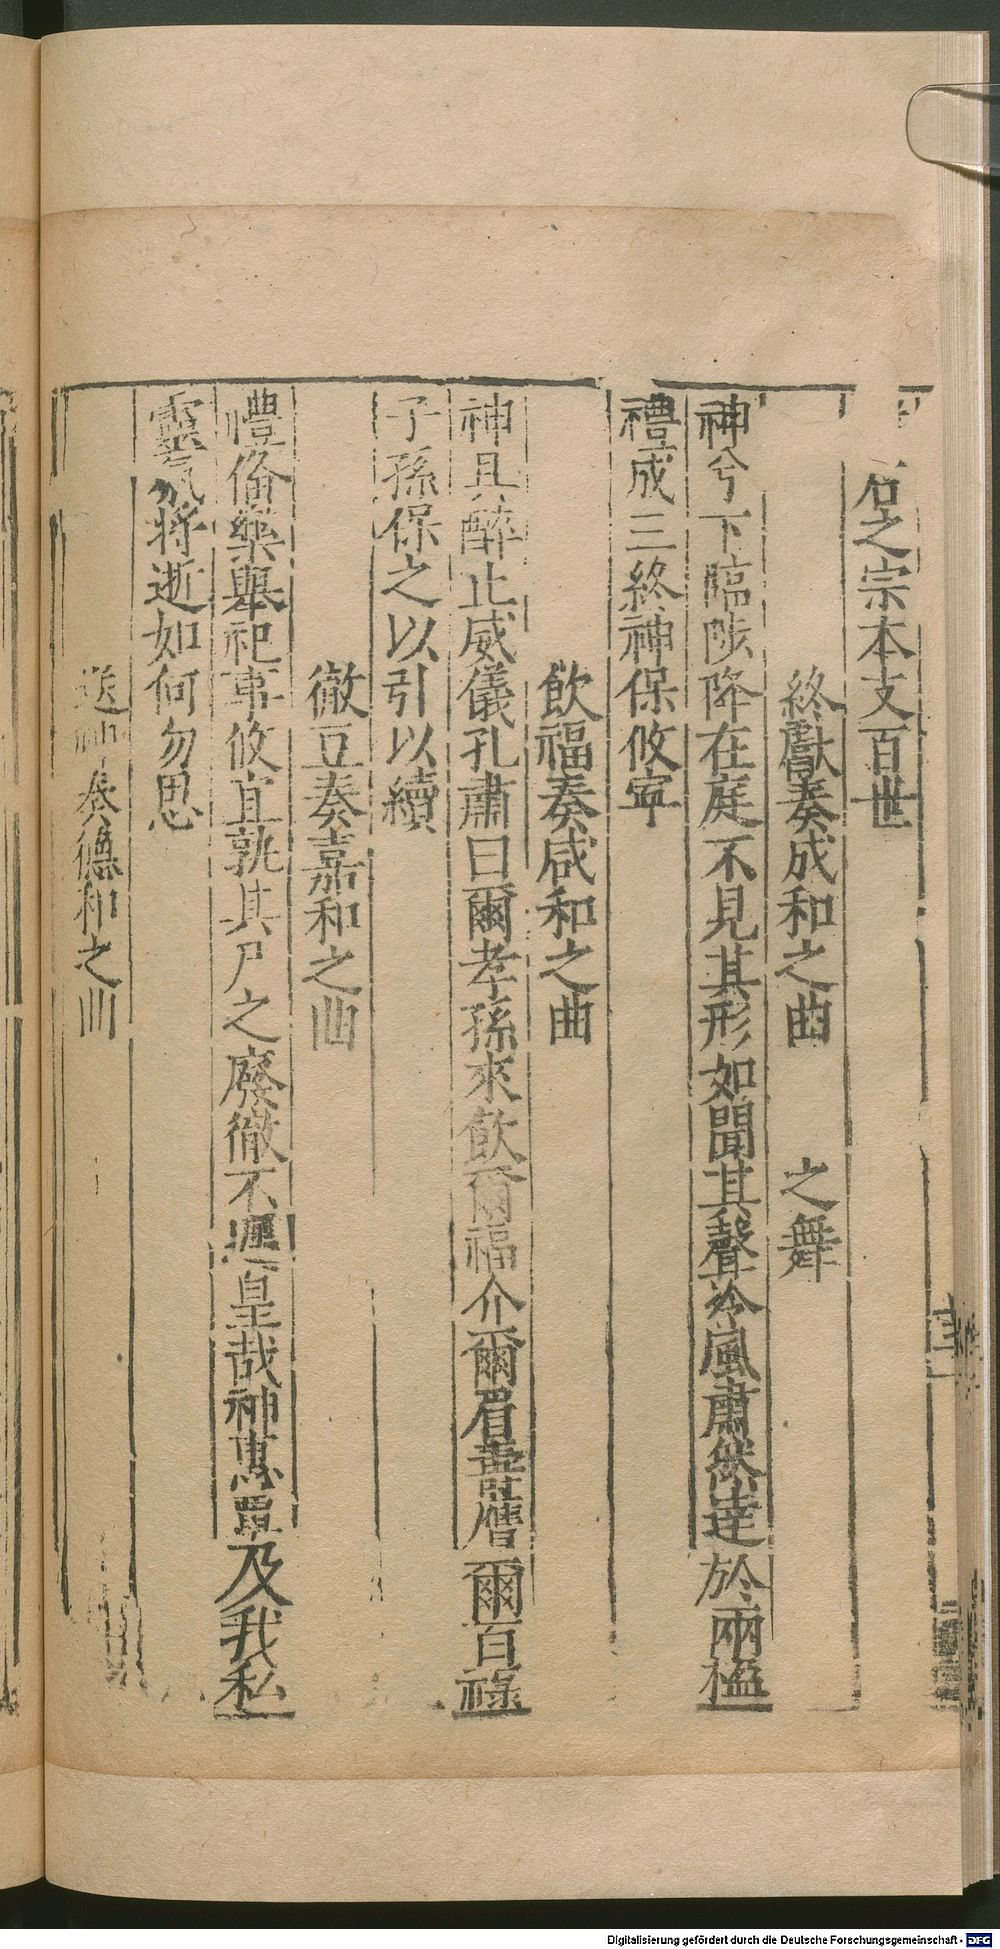 石之宗本支百世
終獻奏成和之曲 之舞
神兮下臨陟降在庭不見其形如聞其聲泠風肅然達於兩楹
禮成三終神保攸寧
飲福奏咸和之曲
神具醉止威儀孔肅曰爾孝孫來飲爾福介爾眉壽膺爾百祿
子孫保之以引以續
徹豆奏嘉和之曲
禮備樂舉祀事攸宜孰其尸之廢徹不遲皇哉神惠畢及我私
靈氣將逝如何勿思
送神奏德和之曲
Digitalisierung gefördert durch die Deutsche Forschungsgemeinschaft - DFG